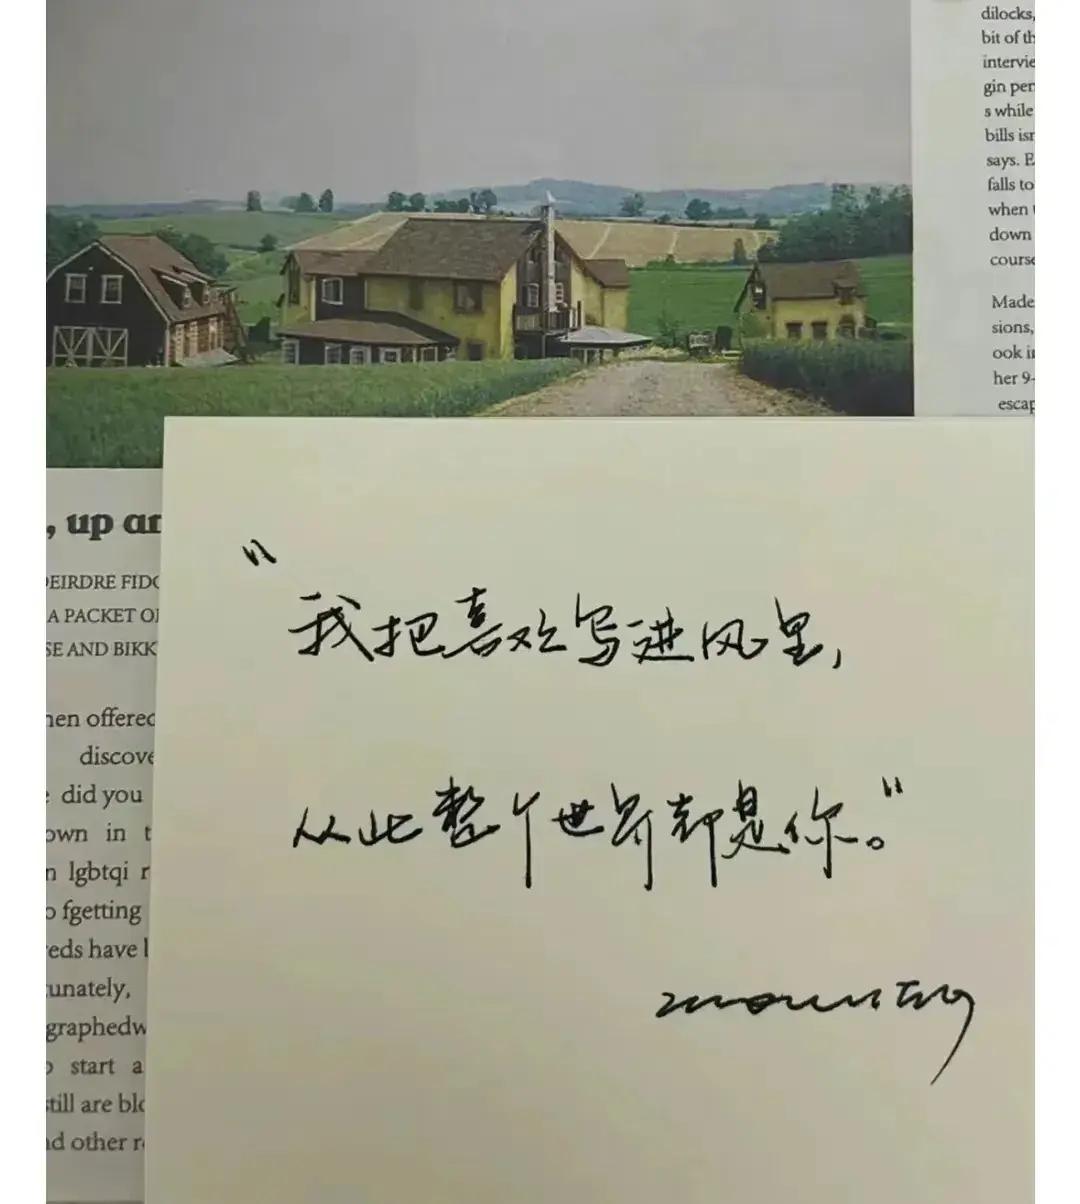 dilocks,
bit of th
intervie
gin per
s while
bills isn
says. E
falls to
when
down
course
Made
sions,
ook i
her 9-
escap
, up ar
EIRDRE FIDG
A PACKET O
SE AND BIKK
hen offered
discove
did you
own in t
n lgbtqi r
o fgetting
eds have l
unately,
graphedw
o start a
still are blo
nd other r
"我把喜欢写进风里,
从此整个世界都是你。"